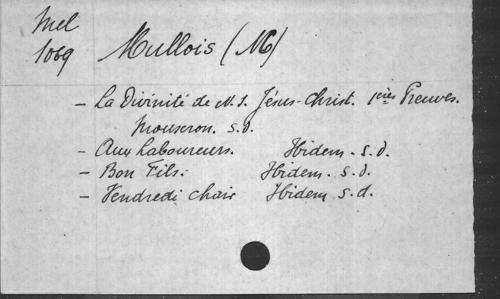 Mel
1069
Mullois (M)
- La Divinité de N.S. Jésus-Christ. 1ères Preuves.
Mouscron. s.d.
- Aux Laboureurs. Ibidem. s.d.
- Bon Fils. Ibidem. s.d.
- Vendredi chair Ibidem s.d.